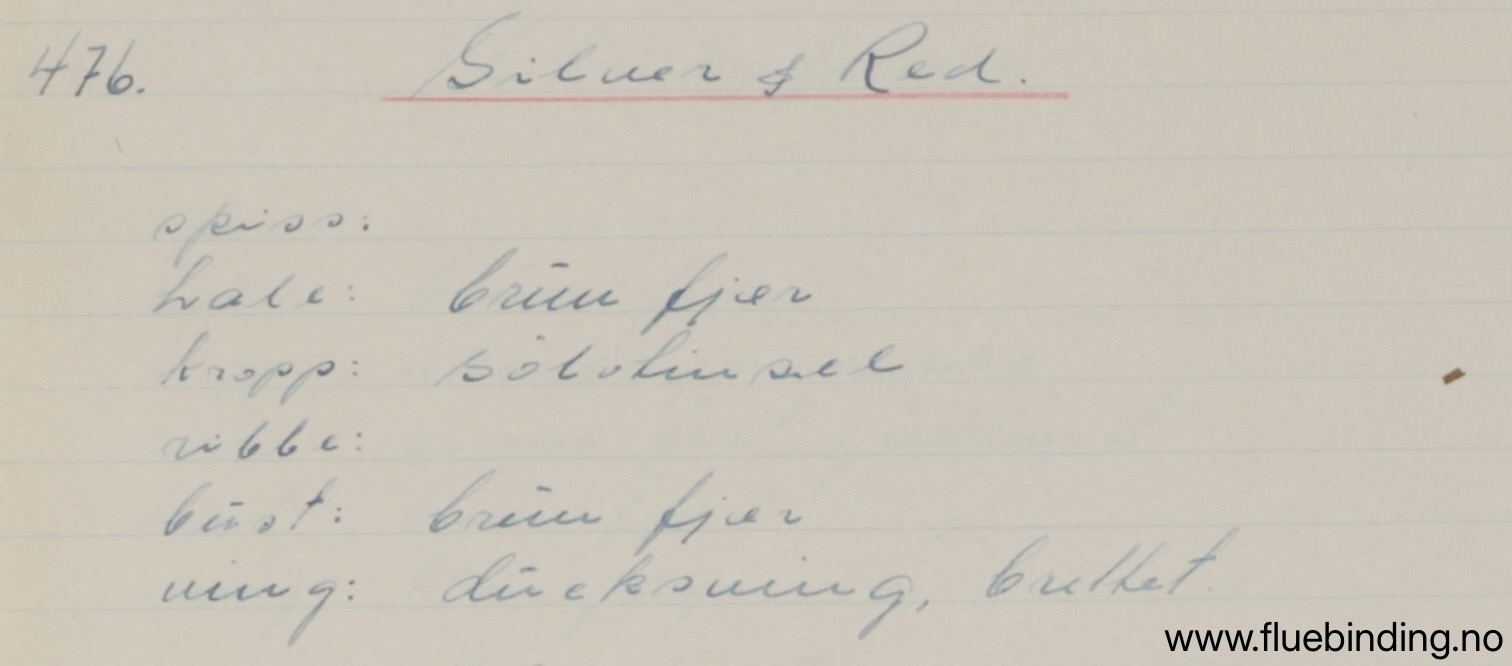 476. Silver & Red.
spiss:
hale: brun fjær
kropp: sölvtinsel
ribbe:
bust: brun fjær
ving: duckswing, brettet.
www.fluebinding.no